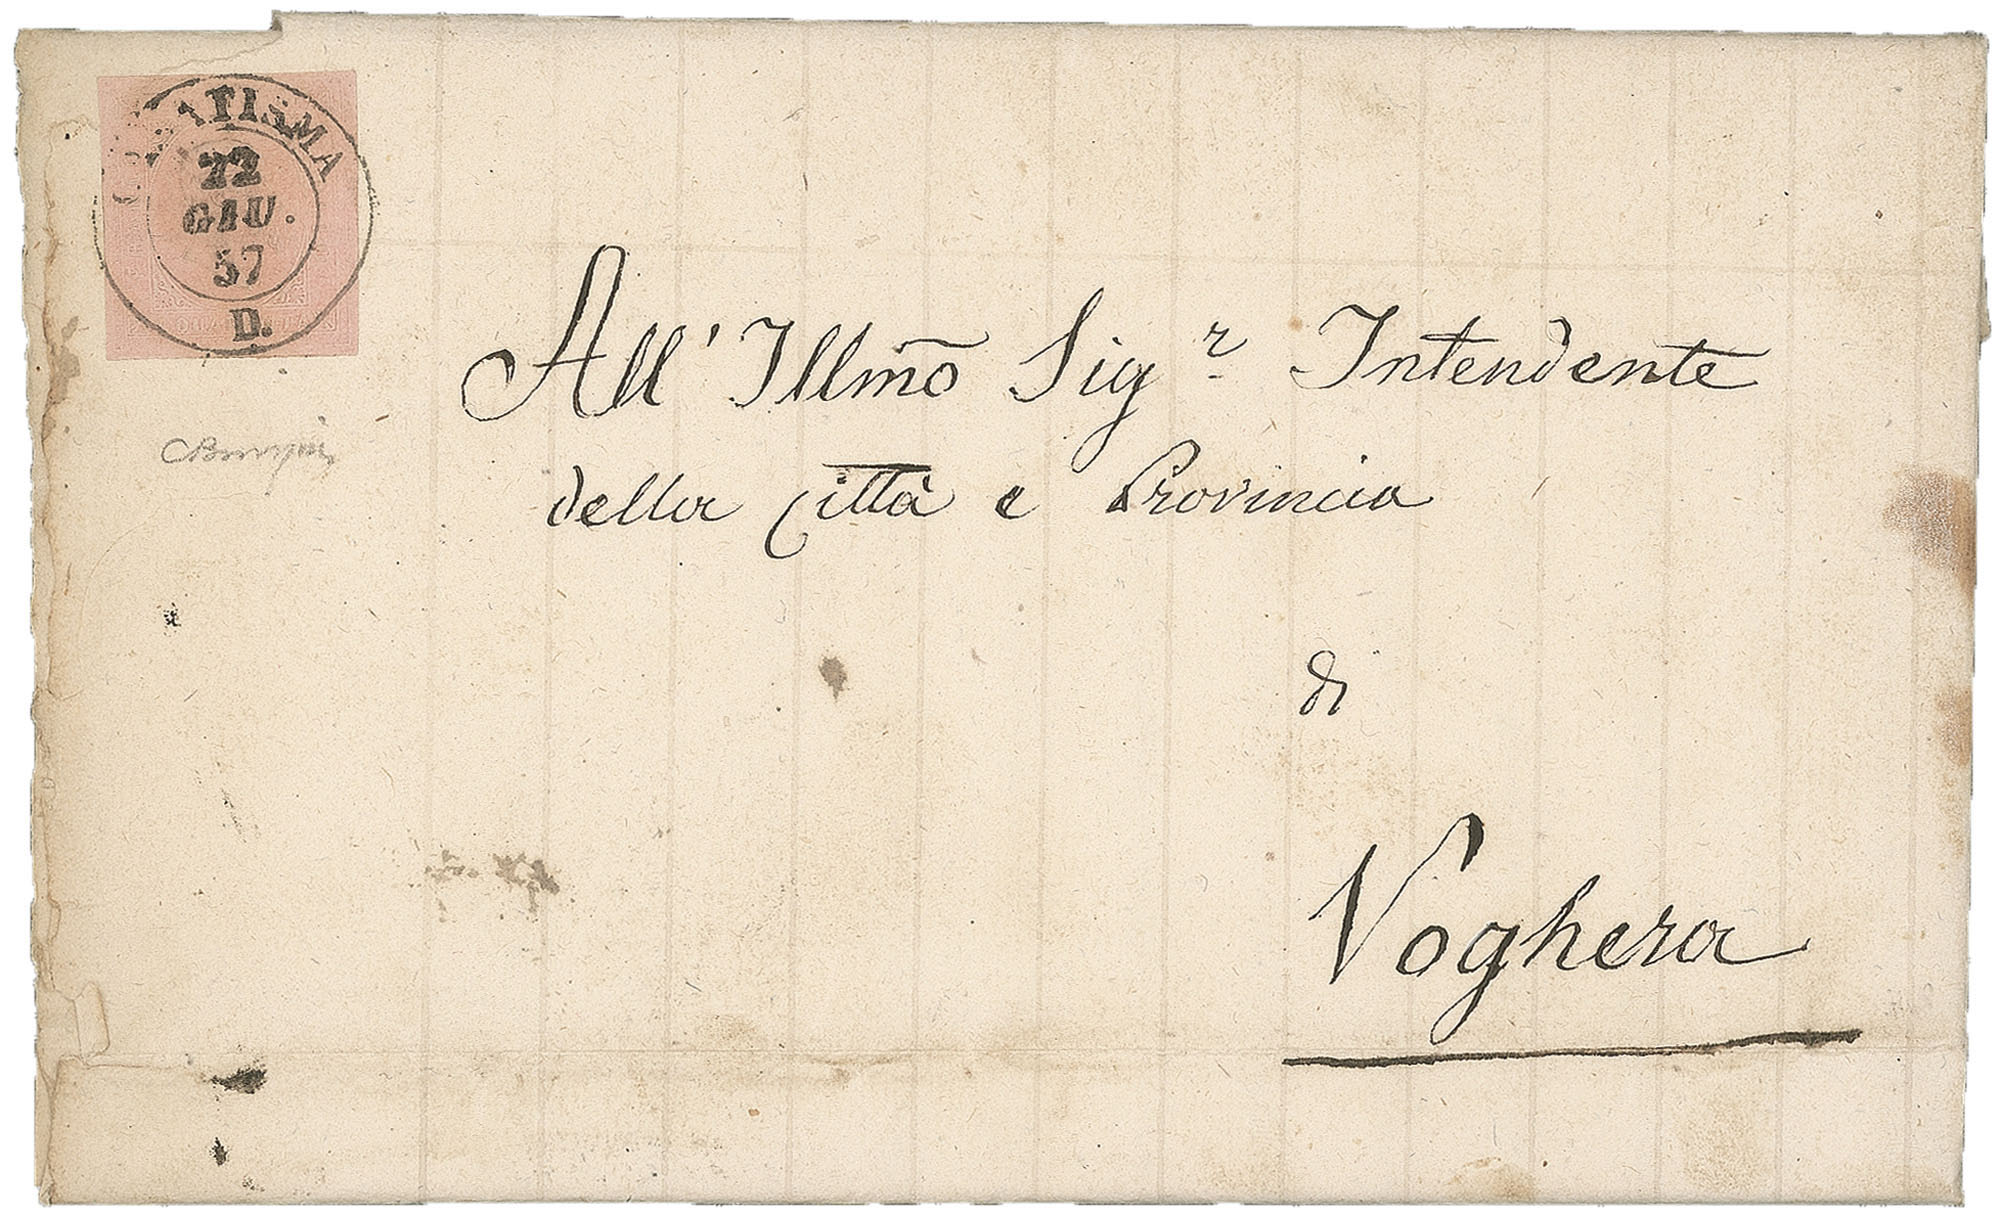 22
GIU.
57
D.
All' Illmo Sigr Intendente
della Città e Provincia
di
Voghera